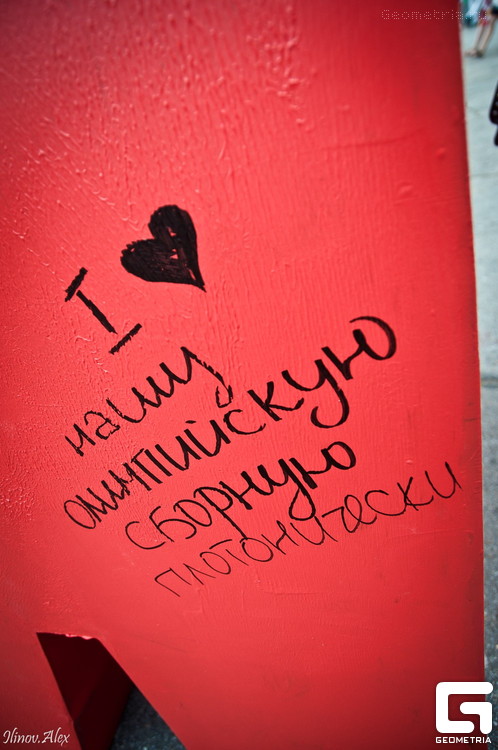 Geometria.ru
I ♥
нашу
олимпийскую
сборную
плотонически
Ilinov.Alex
GEOMETRIA